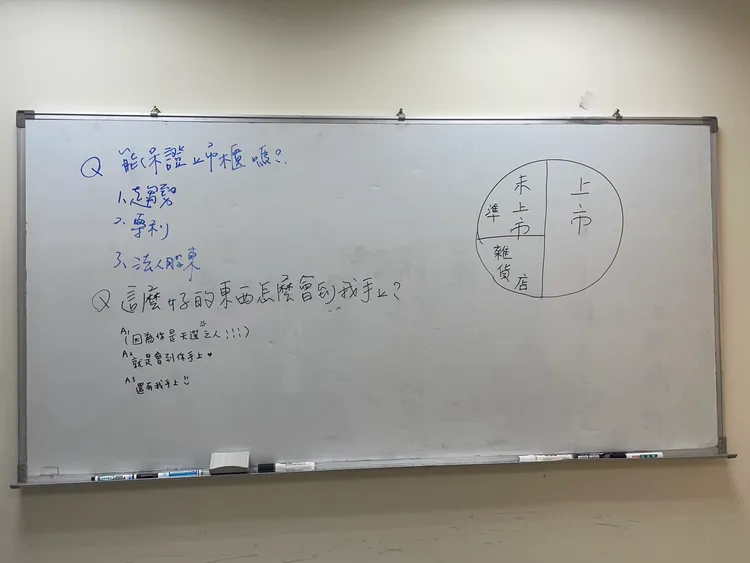 Q 能保證上市櫃嗎?
1、趨勢
2、專利
3、法人股東
Q 這麼好的東西怎麼會到我手上?
A1 (因為你是天選之人!!!)
A2 就是會到你手上♥
A3 還有我手上!!
準 未上市
雜貨店
上市